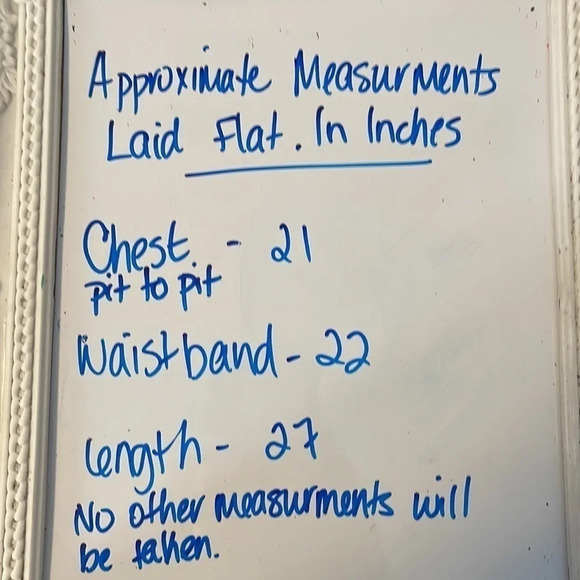 Approximate Measurments
Laid Flat. In Inches
Chest - 21
pit to pit
Waistband - 22
Length - 27
No other measurments will
be taken.